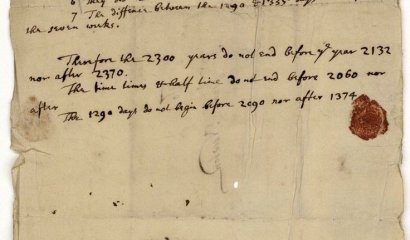 7 The diffence between the 1290 & 1335 days
the seven weeks.
Therfore the 2300 years do not end before yᵉ year 2132
nor after 2370.
The time times & half time do not end before 2060 nor
after
The 1290 days do not begin before 2090 nor after 1374